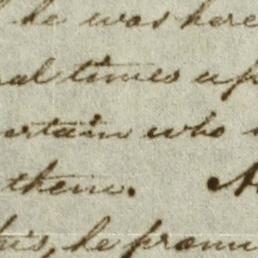 he was here
al times up
ertain who
them. A
his, he prom